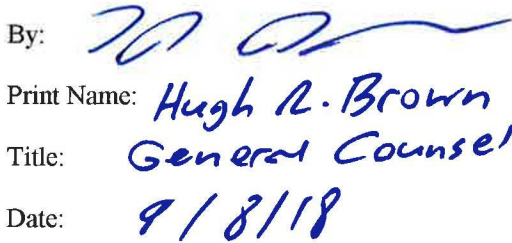 By:
Print Name: Hugh R. Brown
Title: General Counsel
Date: 9/8/18